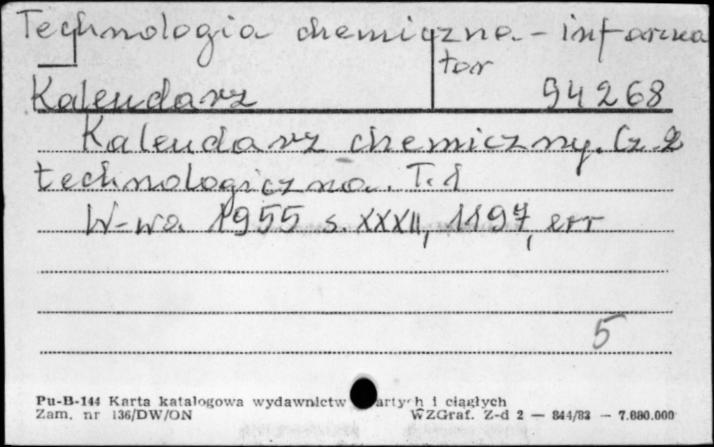 Technologia chemiczna - informa
tor
Kalendarz 94268
Kalendarz chemiczny. Cz 2
technologiczna. T. 1
W-wa 1955 s. XXXII, 1197, err
5
Pu-B-144 Karta katalogowa wydawnictw artych i ciągłych
Zam. nr 136/DW/ON WZGraf. Z-d 2 — 844/83 — 7.000.000